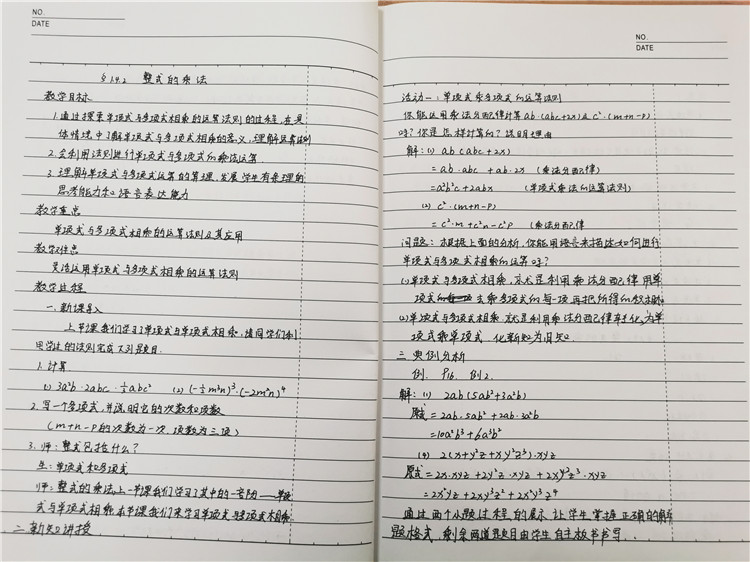 NO.
DATE
§ 1.4.2 整式的乘法
教学目标
1. 通过探索单项式与多项式相乘的运算法则的过程,在具
体情境中了解单项式与多项式相乘的意义,理解运算法则
2. 会利用法则进行单项式与多项式的乘法运算
3. 理解单项式与多项式运算的算理,发展学生有条理的
思考能力和语言表达能力
教学重点
单项式与多项式相乘的运算法则及其应用
教学难点
灵活运用单项式与多项式相乘的运算法则
教学过程
一. 新课导入
上节课我们学习了单项式与单项式相乘,请同学们利
用学过的法则完成下列题目.
1. 计算
(1) 3a²b·2abc·⅓abc² (2) (-½m³n)³·(-2m²n)⁴
2. 写一个多项式,并说明它的次数和项数
(m+n-p的次数为一次,项数为三项)
3. 师: 整式包括什么?
生: 单项式和多项式
师: 整式的乘法上一节课我们学习了其中的一部分——单项
式与单项式相乘.本节课我们来学习单项式与多项式相乘.
二. 新知讲授
NO.
DATE
活动一: 单项式乘多项式的运算法则
你能运用乘法分配律计算ab·(abc+2x)及c²·(m+n-p)
吗? 你是怎样计算的? 说明理由
解: (1) ab(abc+2x)
=ab·abc+ab·2x (乘法分配律)
=a²b²c+2abx (单项式乘法的运算法则)
(2) c²·(m+n-p)
=c²·m+c²n-c²p (乘法分配律
问题: 根据上面的分析,你能用语言来描述如何进行
单项式与多项式相乘的运算吗?
(1)单项式与多项式相乘,其就是利用乘法分配律用单
项式去乘多项式的每一项再把所得的积相加
(2)单项式与多项式相乘,就是利用乘法分配律转化为单
项式乘单项式 化新知为旧知
三. 典例分析
例. P16. 例2.
解: (1) 2ab(5ab²+3a²b)
原式=2ab·5ab²+2ab·3a²b
=10a²b³+6a³b²
(4) 2(x+y²z+xy²z³)·xyz
原式=2x·xyz+2y²z·xyz+2xy²z³·xyz
=2x²yz+2xy³z²+2x²y³z⁴
通过两个小题过程的展示,让学生掌握正确的解
题格式,剩余两道题目由学生自主板书书写.